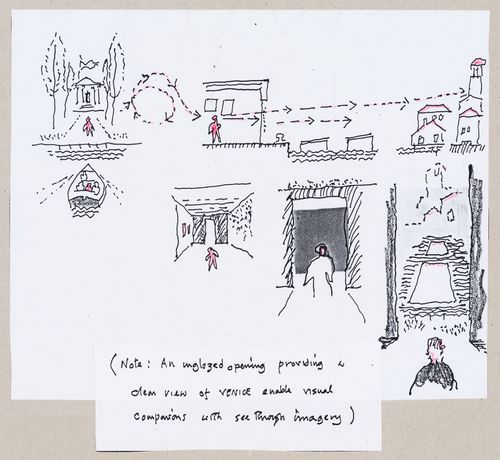 (Note: An unglazed opening providing a
clear view of VENICE enable visual
comparisons with see through imagery)